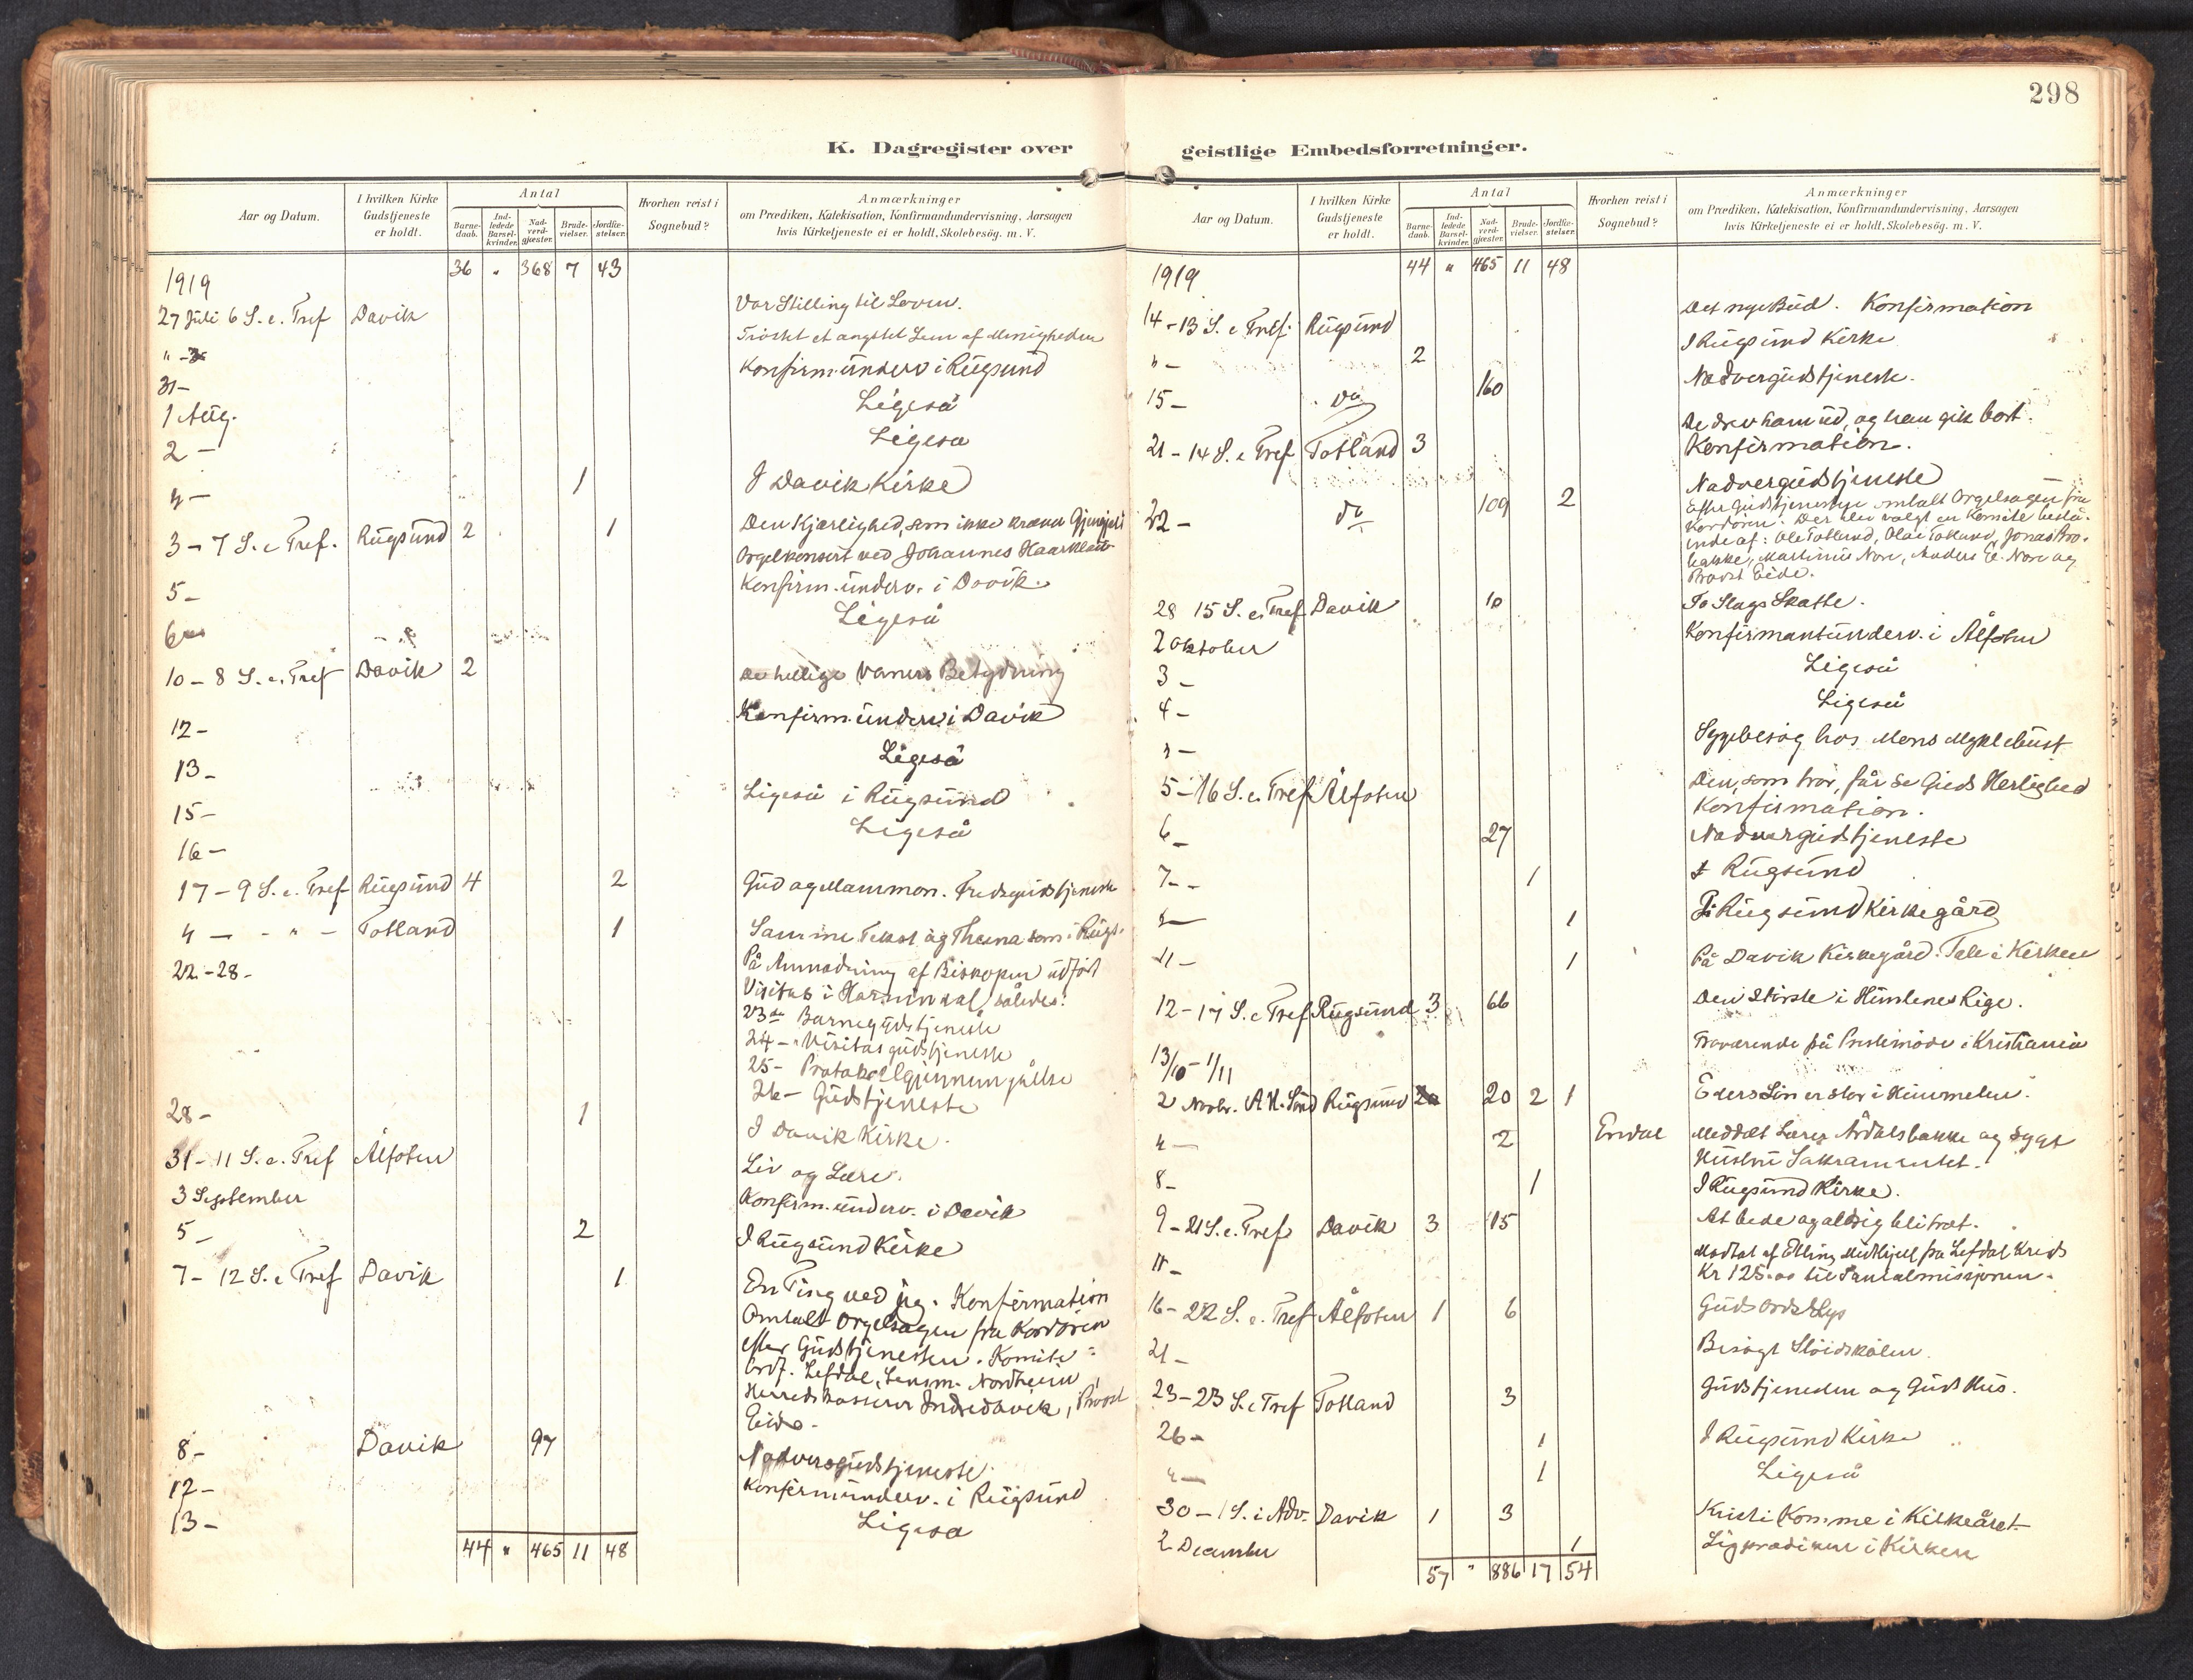 298
K. Dagregister over geistlige Embedsforretninger.
Aar og Datum. I hvilken Kirke Gudstjeneste er holdt. Antal Barne-daab. Ind-ledede Barsel-kvinder. Nad-verd-gjæster. Brude-vielser. Jordfæ-stelser. Hvorhen reist i Sognebud? Anmærkninger om Prædiken, Katekisation, Konfirmandundervisning, Aarsagen hvis Kirketjeneste ei er holdt, Skolebesög. m. V.
1919 36 " 368 7 43
27 Juli 6 S. e. Tref Davik Vor Stilling til Loven.
" - Tröstet et Lem af Menigheden
31 - Konfirm. underv i Rugsund
1 Aug. Ligeså
2 - Ligesa
" - 1 I Davik Kirke
3 - 7 S. e Tref. Rugsund 2 1 Den Kjærlighed, som ikke kræver Gjengjeld
Orgelkonsert ved Johannes Haarklau
5 - Konfirm. underv. i Davik.
6 - Ligeså
10 - 8 S. e. Tref Davik 2 De hellige Vaners Betydning
12 - Konfirm. underv. i Davik
13 - Ligeså
15 - Ligeså i Rugsund
16 - Ligeså
17 - 9 S. e. Tref Rugsund 4 2 Gud og Mammon. Fredsgudstjeneste
" - - " - Totland 1 Samme Tekst og Thema som i Rugs.
22 - 28 - På Anmodning af Biskopen udført
Visitas i således:
23de Barnegudstjeneste
24 - Visitasgudstjeneste
25 - Protokolgjennemgåelse
26 - Gudstjeneste
28 - 1 I Davik Kirke.
31 - 11 S. e. Tref Ålfoten Liv og Lære.
3 September Konfirm. underv. i Davik
5 - 2 I Rugsund Kirke
7 - 12 S. e Tref Davik 1 En Ting ved jeg. Konfirmation
Omtalt Orgelsagen fra Kordören
efter Gudstjenesten. Komite:
Ordf. Lefdal, Lensm. Nordheim,
Herredskasserer Indredavik, Provst
Eide.
8 - Davik 97 Nadvergudstjeneste.
12 - Konfirmunderv. i Rugsund
13 - Ligesa
44 " 465 11 48
Aar og Datum. I hvilken Kirke Gudstjeneste er holdt. Antal Barne-daab. Ind-ledede Barsel-kvinder. Nad-verd-gjæster. Brude-vielser. Jordfæ-stelser. Hvorhen reist i Sognebud? Anmærkninger om Prædiken, Katekisation, Konfirmandundervisning, Aarsagen hvis Kirketjeneste ei er holdt, Skolebesög. m. V.
1919 44 " 465 11 48
14 - 13 S. e Tref. Rugsund Det nye Bud. Konfirmation
" - 2 I Rugsund Kirke
15 - do 160 Nadvergudstjeneste.
21 - 14 S. e Tref Totland 3 De drev ham ud, og han gik bort.
Konfirmation.
22 - do 109 2 Nadvergudstjeneste
Efter Gudstjenesten omtalt Orgelsagen fra
Kordören. Der blev valgt en Komite bestå-
ende af: Ole Totland, Olai Totland, Jonas
Martinus Nore, Anders E. Nore og
Provst Eide.
28 15 S. e. Tref Davik 10 To Slags Skatte.
2 Oktober Konfirmantunderv. i Ålfoten
3 - Ligeså
4 - Ligeså
" - Sygebesög hos Mons Myklebust
5 - 16 S. e. Tref Ålfoten Den, som tror, får se Guds Herlighed
Konfirmation.
6 - 27 Nadvergudstjeneste
7 - - 1 I Rugsund
8 - 1 På Rugsund Kirkegård
11 - 1 På Davik Kirkegård. Tale i Kirken
12 - 17 S. e Tref Rugsund 3 66 Den Störste i Himlenes Rige.
13/10 - 1/11 Fraværende på Prestemöde i Kristiania
2 Novbr. A H. Sönd Rugsund 20 2 1 Eders Lön er stor i Himmelen.
" - 2 Endal Meddelt Lærer Årdalsbakke og syge
Hustru Sakramentet.
8 - 1 I Rugsund Kirke.
9 - 21 S. e. Tref Davik 3 15 At bede og aldrig bli træt.
11 - Modtat af Elling Midtkjell fra Lefdal Kreds
Kr 125.00 til Santalmissjonen.
16 - 22 S. e. Tref Ålfoten 1 6 Guds Ords Lys
21 - Besögt Slöidskolen.
23 - 23 S. e Tref Totland 3 Gudstjenesten og Guds Hus.
26 - 1 I Rugsund Kirke
" - 1 Ligeså
30 - 1 S. i Adv. Davik 1 3 Kristi Komme i Kirkeåret
2 December 1 Ligprædiken i Kirken
57 " 886 17 54